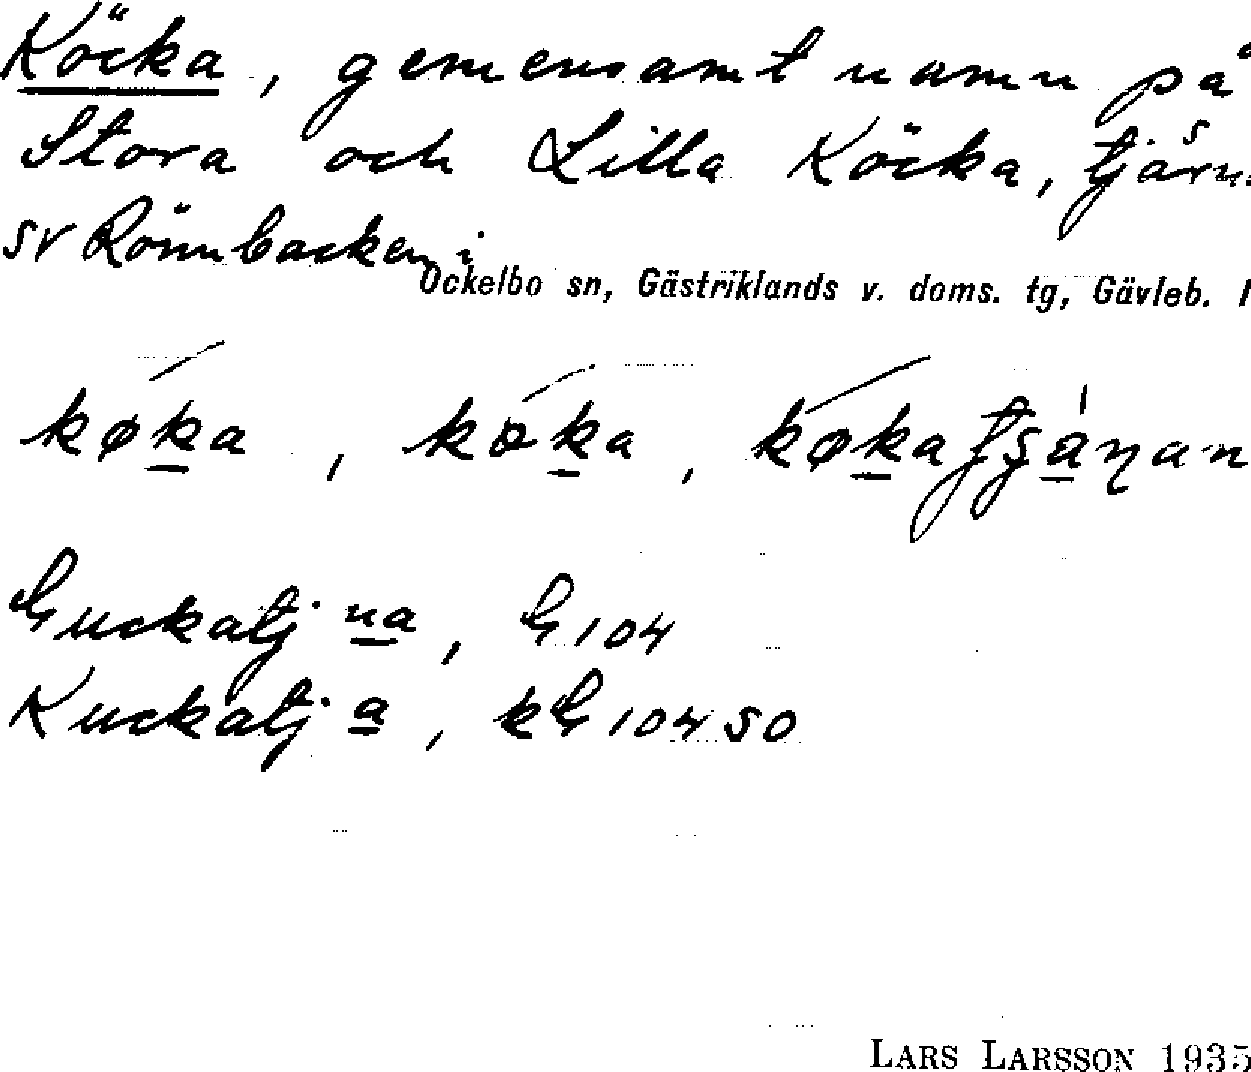 Köcka, gemensamt namn på
Stora och Lilla Köcka, tjärn
sv Rönnbacken i
Ockelbo sn, Gästriklands v. doms. tg, Gävleb. l
køka, køka, køkatjänan
Guckatj na, G 104
Kuckatj a, kG 104 SO
LARS LARSSON 1935